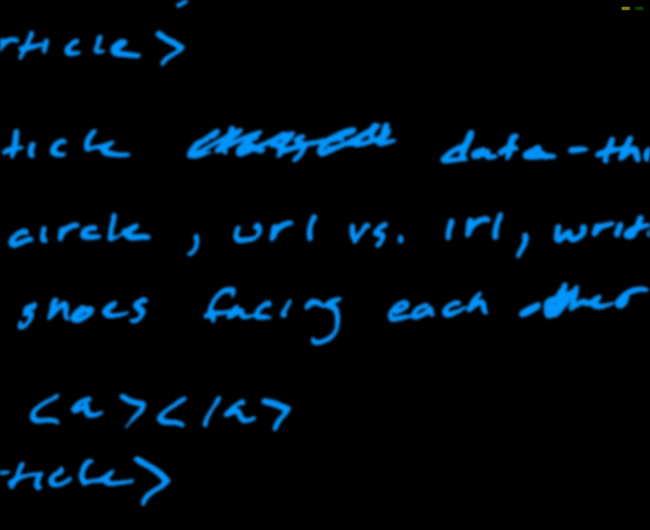 rticle>
ticle data-thi
circle, url vs. irl, writ
shoes facing each other
<a></a>
ticle>